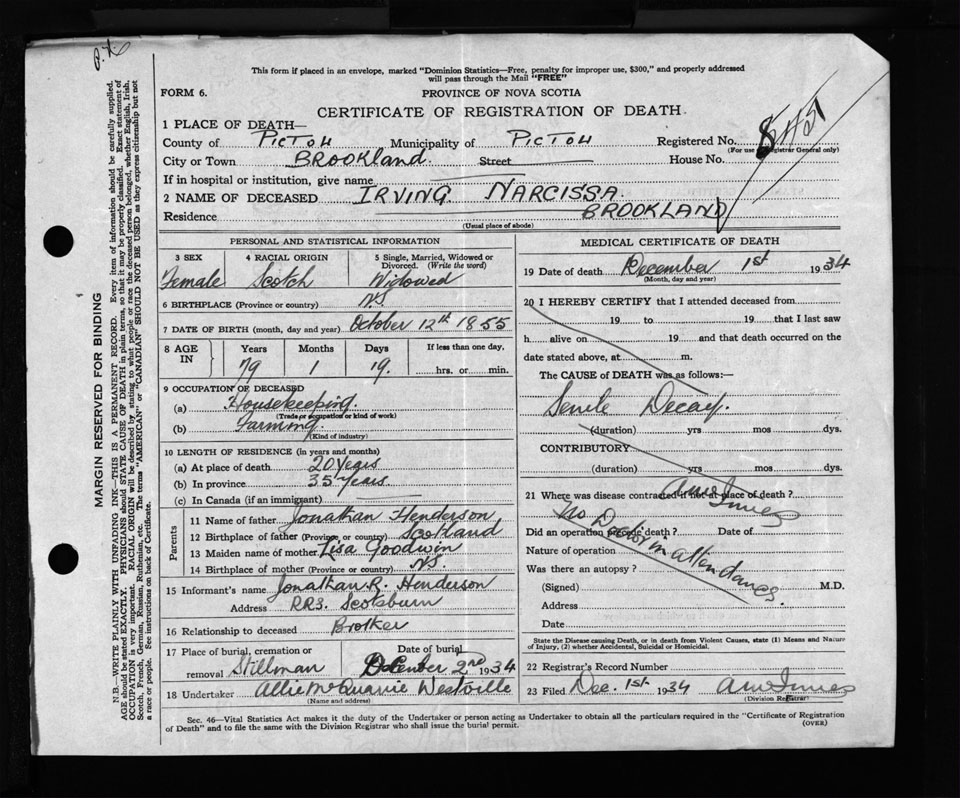 P.X
This form if placed in an envelope, marked "Dominion Statistics—Free, penalty for improper use, $300," and properly addressed
will pass through the Mail "FREE"
FORM 6.
PROVINCE OF NOVA SCOTIA
CERTIFICATE OF REGISTRATION OF DEATH.
1 PLACE OF DEATH—
County of PICTOU Municipality of PICTOU Registered No.
(For use of Registrar General only)
City or Town BROOKLAND. Street House No.
If in hospital or institution, give name
2 NAME OF DECEASED IRVING NARCISSA.
Residence BROOKLAND
(Usual place of abode)
PERSONAL AND STATISTICAL INFORMATION
3 SEX 4 RACIAL ORIGIN 5 Single, Married, Widowed or Divorced. (Write the word)
Female Scotch Widowed
6 BIRTHPLACE (Province or country) N.S
7 DATE OF BIRTH (month, day and year) October 12th 1855
8 AGE IN Years Months Days If less than one day,
79 1 19. hrs. or min.
9 OCCUPATION OF DECEASED
(a) Housekeeping
(Trade or occupation or kind of work)
(b) Farming.
(Kind of industry)
10 LENGTH OF RESIDENCE (in years and months)
(a) At place of death 20 Years
(b) In province 35 Years
(c) In Canada (if an immigrant)
Parents
11 Name of father Jonathan Henderson
12 Birthplace of father (Province or country) Scotland
13 Maiden name of mother Lisa Goodwin
14 Birthplace of mother (Province or country) N.S.
15 Informant's name Jonathan R. Henderson
Address RR3. Scotsburn
16 Relationship to deceased Brother
17 Place of burial, cremation or removal Stillman Date of burial December 2nd 1934
18 Undertaker Allie McQuarrie Westville
(Name and address)
MEDICAL CERTIFICATE OF DEATH
19 Date of death December 1st 1934
(Month, day and year)
20 I HEREBY CERTIFY that I attended deceased from
19 to 19 that I last saw
h alive on 19 and that death occurred on the
date stated above, at m.
The CAUSE of DEATH was as follows:—
Senile Decay.
(duration) yrs mos dys.
CONTRIBUTORY
(duration) yrs mos dys.
21 Where was disease contracted if not at place of death?
Did an operation precede death? Date of
No Doctor in attendance.
Nature of operation
Was there an autopsy?
(Signed) M.D.
Address
Date
State the Disease causing Death, or in death from Violent Causes, state (1) Means and Nature
of Injury, (2) whether Accidental, Suicidal or Homicidal.
22 Registrar's Record Number
23 Filed Dec. 1st 1934
(Division Registrar)
Sec. 46—Vital Statistics Act makes it the duty of the Undertaker or person acting as Undertaker to obtain all the particulars required in the "Certificate of Registration
of Death" and to file the same with the Division Registrar who shall issue the burial permit. (OVER)
MARGIN RESERVED FOR BINDING
N.B.—WRITE PLAINLY WITH UNFADING INK—THIS IS A PERMANENT RECORD. Every item of information should be carefully supplied.
AGE should be stated EXACTLY. PHYSICIANS should STATE CAUSE OF DEATH in plain terms, so that it may be properly classified. Exact statement of
OCCUPATION is very important. RACIAL ORIGIN will be described by stating to what people or race the deceased person belonged, whether English, Irish,
Scotch, French, German, Russian, Ruthenian, etc. The terms "AMERICAN" or "CANADIAN" SHOULD NOT BE USED as they express citizenship but not
a race or people. See instructions on back of Certificate.